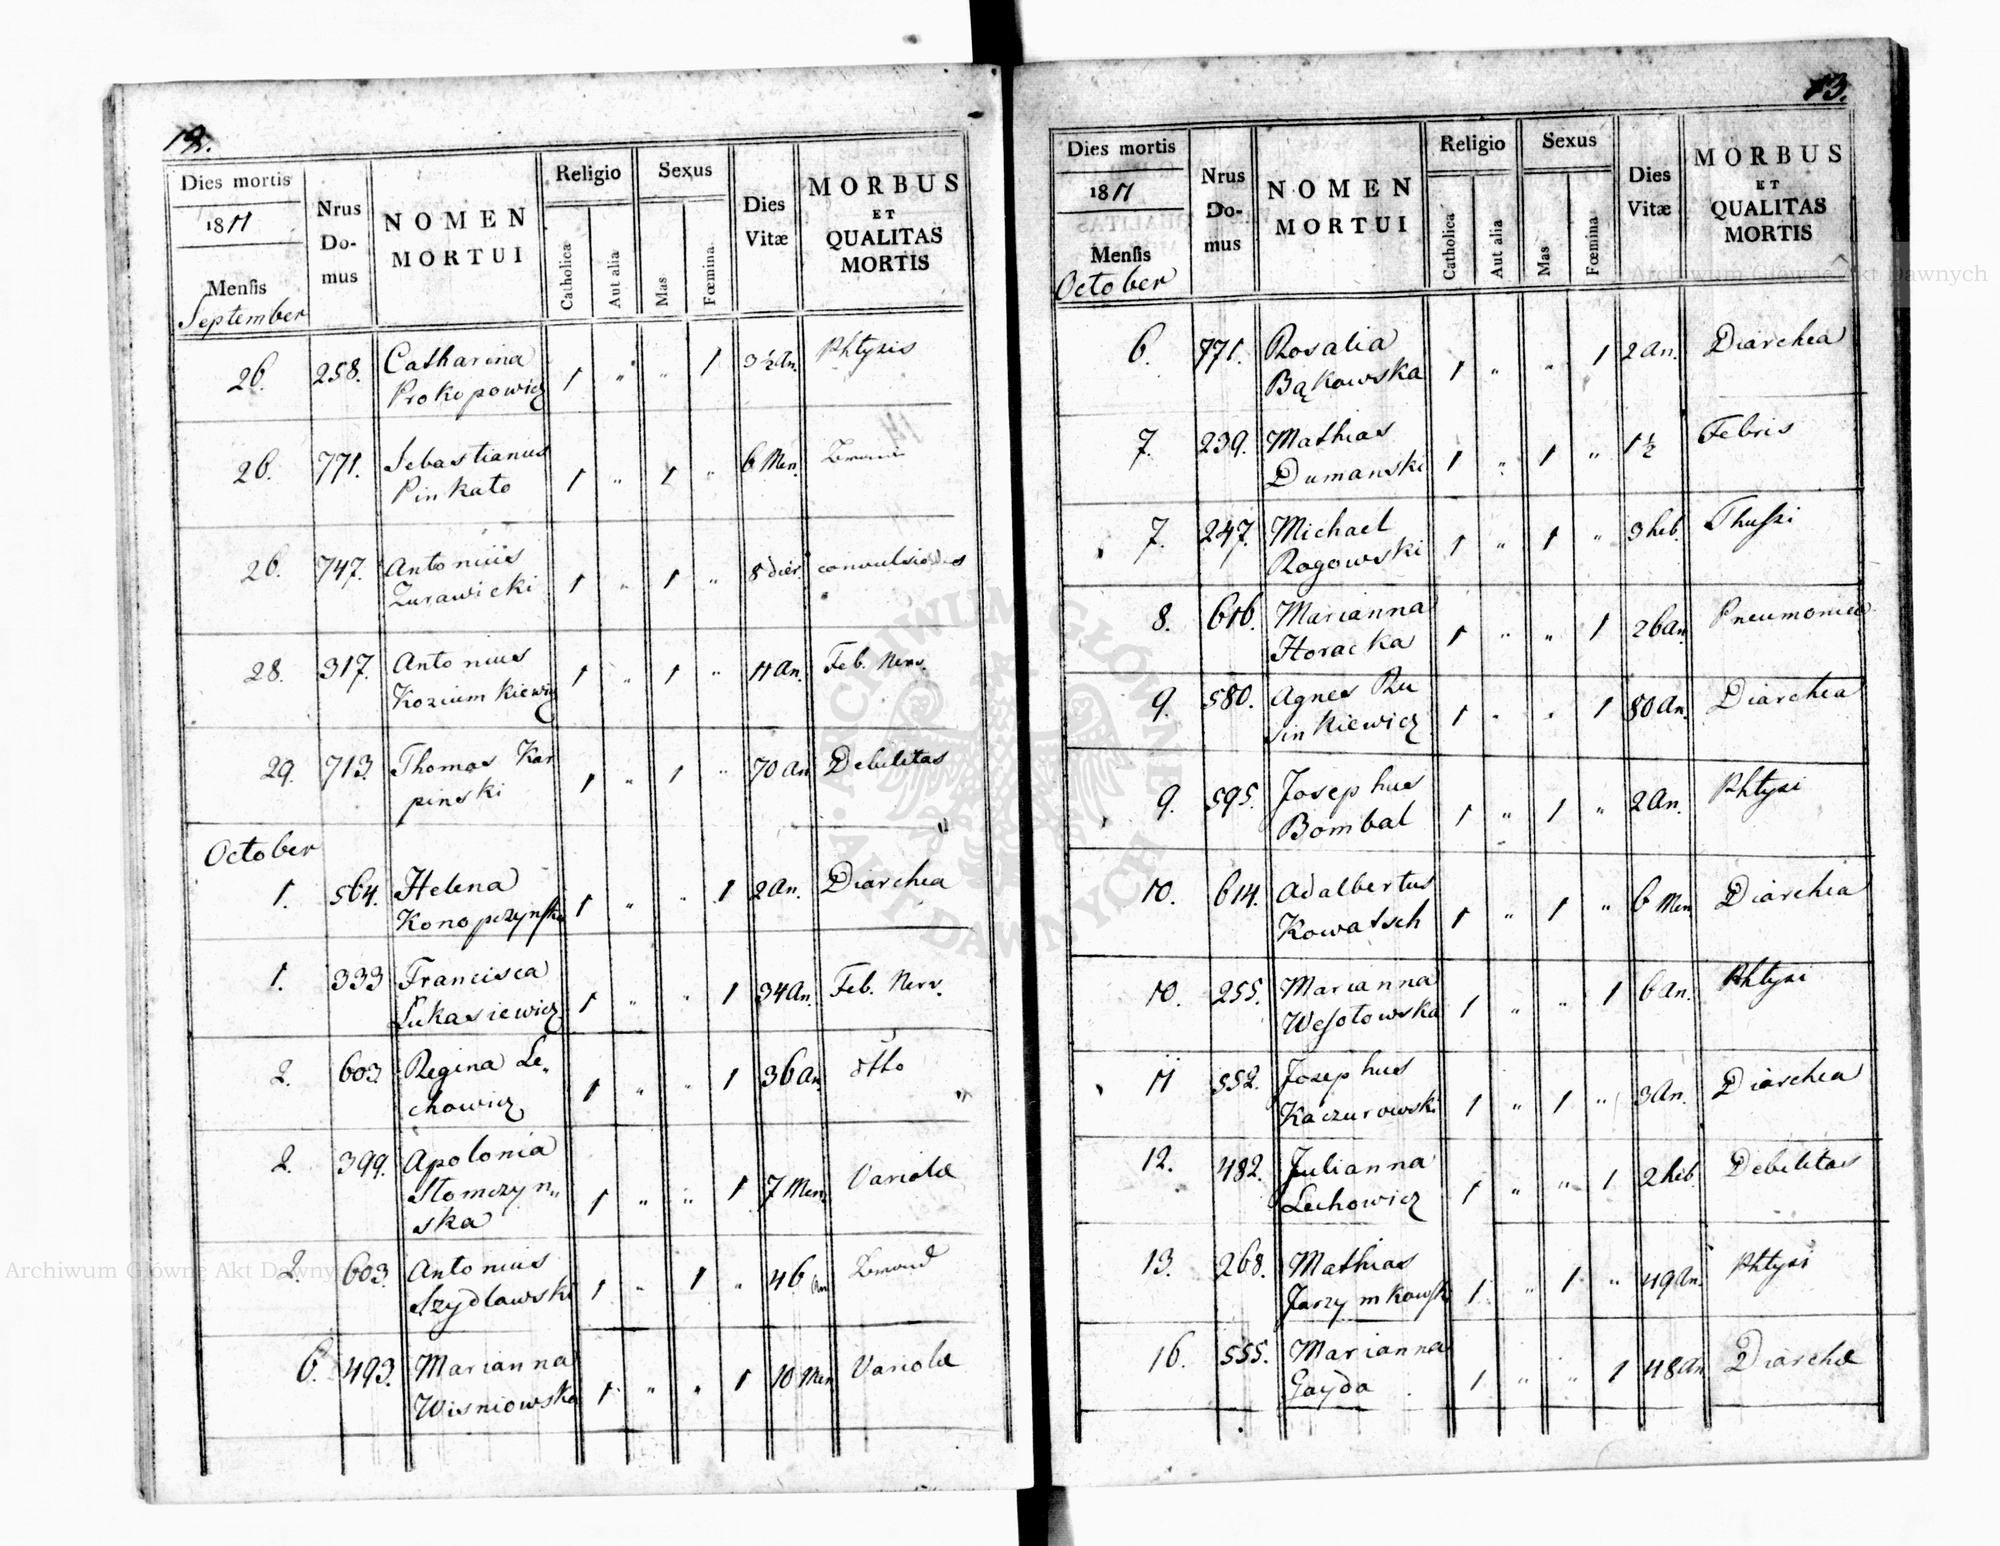 12.
Dies mortis Nrus Domus NOMEN MORTUI Religio Sexus Dies Vitæ MORBUS ET QUALITAS MORTIS
1811
Mensis Catholica Aut alia Mas Fœmina
September
26. 258. Catharina 1 " " 1 3½ An. Phtysis
Prokopowicz
26. 771. Sebastianus 1 " 1 " 6 Men.
Pinkato
26. 747. Antoniüs 1 " 1 " 8 dier.
Zurawicki
28. 317. Antonius 1 " 1 " 11 An. Feb. Nerv.
Koziumkiewicz
29. 713. Thomas Kar 1 " 1 " 70 An Debilitas
pinski
October
1. 564. Helena 1 " " 1 2 An. Diarchea
Konopczynska
1. 333 Francisca 1 " " 1 34 An. Feb. Nerv.
Lukasiewicz
2. 603. Regina Le„ 1 " " 1 36 An. dtto
chowicz
2. 399. Apolonia 1 " " 1 7 Men. Variolæ
Stomczyn„
ska
2. 603. Antonius 1 " 1 " 46 An
Szydlawski
6. 493. Marianna 1 " " 1 10 Men Variolæ
Wisniowska
13.
Dies mortis Nrus Domus NOMEN MORTUI Religio Sexus Dies Vitæ MORBUS ET QUALITAS MORTIS
1811
Mensis Catholica Aut alia Mas Fœmina
October
6. 771. Rosalia 1 " " 1 2 An. Diarchea
Bąkowska
7. 239. Mathias 1 " 1 " 1½ Febris
Dumanski
7. 247. Michael 1 " 1 " 3 heb. Thussi
Rogowski
8. 616. Marianna 1 " " 1 26 An. Pneumonica
Horacka
9. 580. Agnes Ru 1 " " 1 80 An. Diarchea
sinkiewicz
9. 595. Josephus 1 " 1 " 2 An. Phtysi
Bombal
10. 614. Adalbertus 1 " 1 " 6 Men Diarchea
Kowatsch
10. 255. Marianna 1 " " 1 6 An. Phtysi
Wesotowska
11 552. Josephus 1 " 1 " 3 An. Diarchea
Kaczurowski
12. 482. Julianna 1 " " 1 2 heb. Debilitas
Lechowicz
13. 268. Mathias 1 " 1 " 49 An. Phtysi
Jarzymkowski
16. 555. Marianna 1 " " 1 48 An Diarchæ
Gayda
ARCHIWUM GŁÓWNE AKT DAWNYCH
Archiwum Główne Akt Dawnych
Archiwum Główne Akt Dawnych